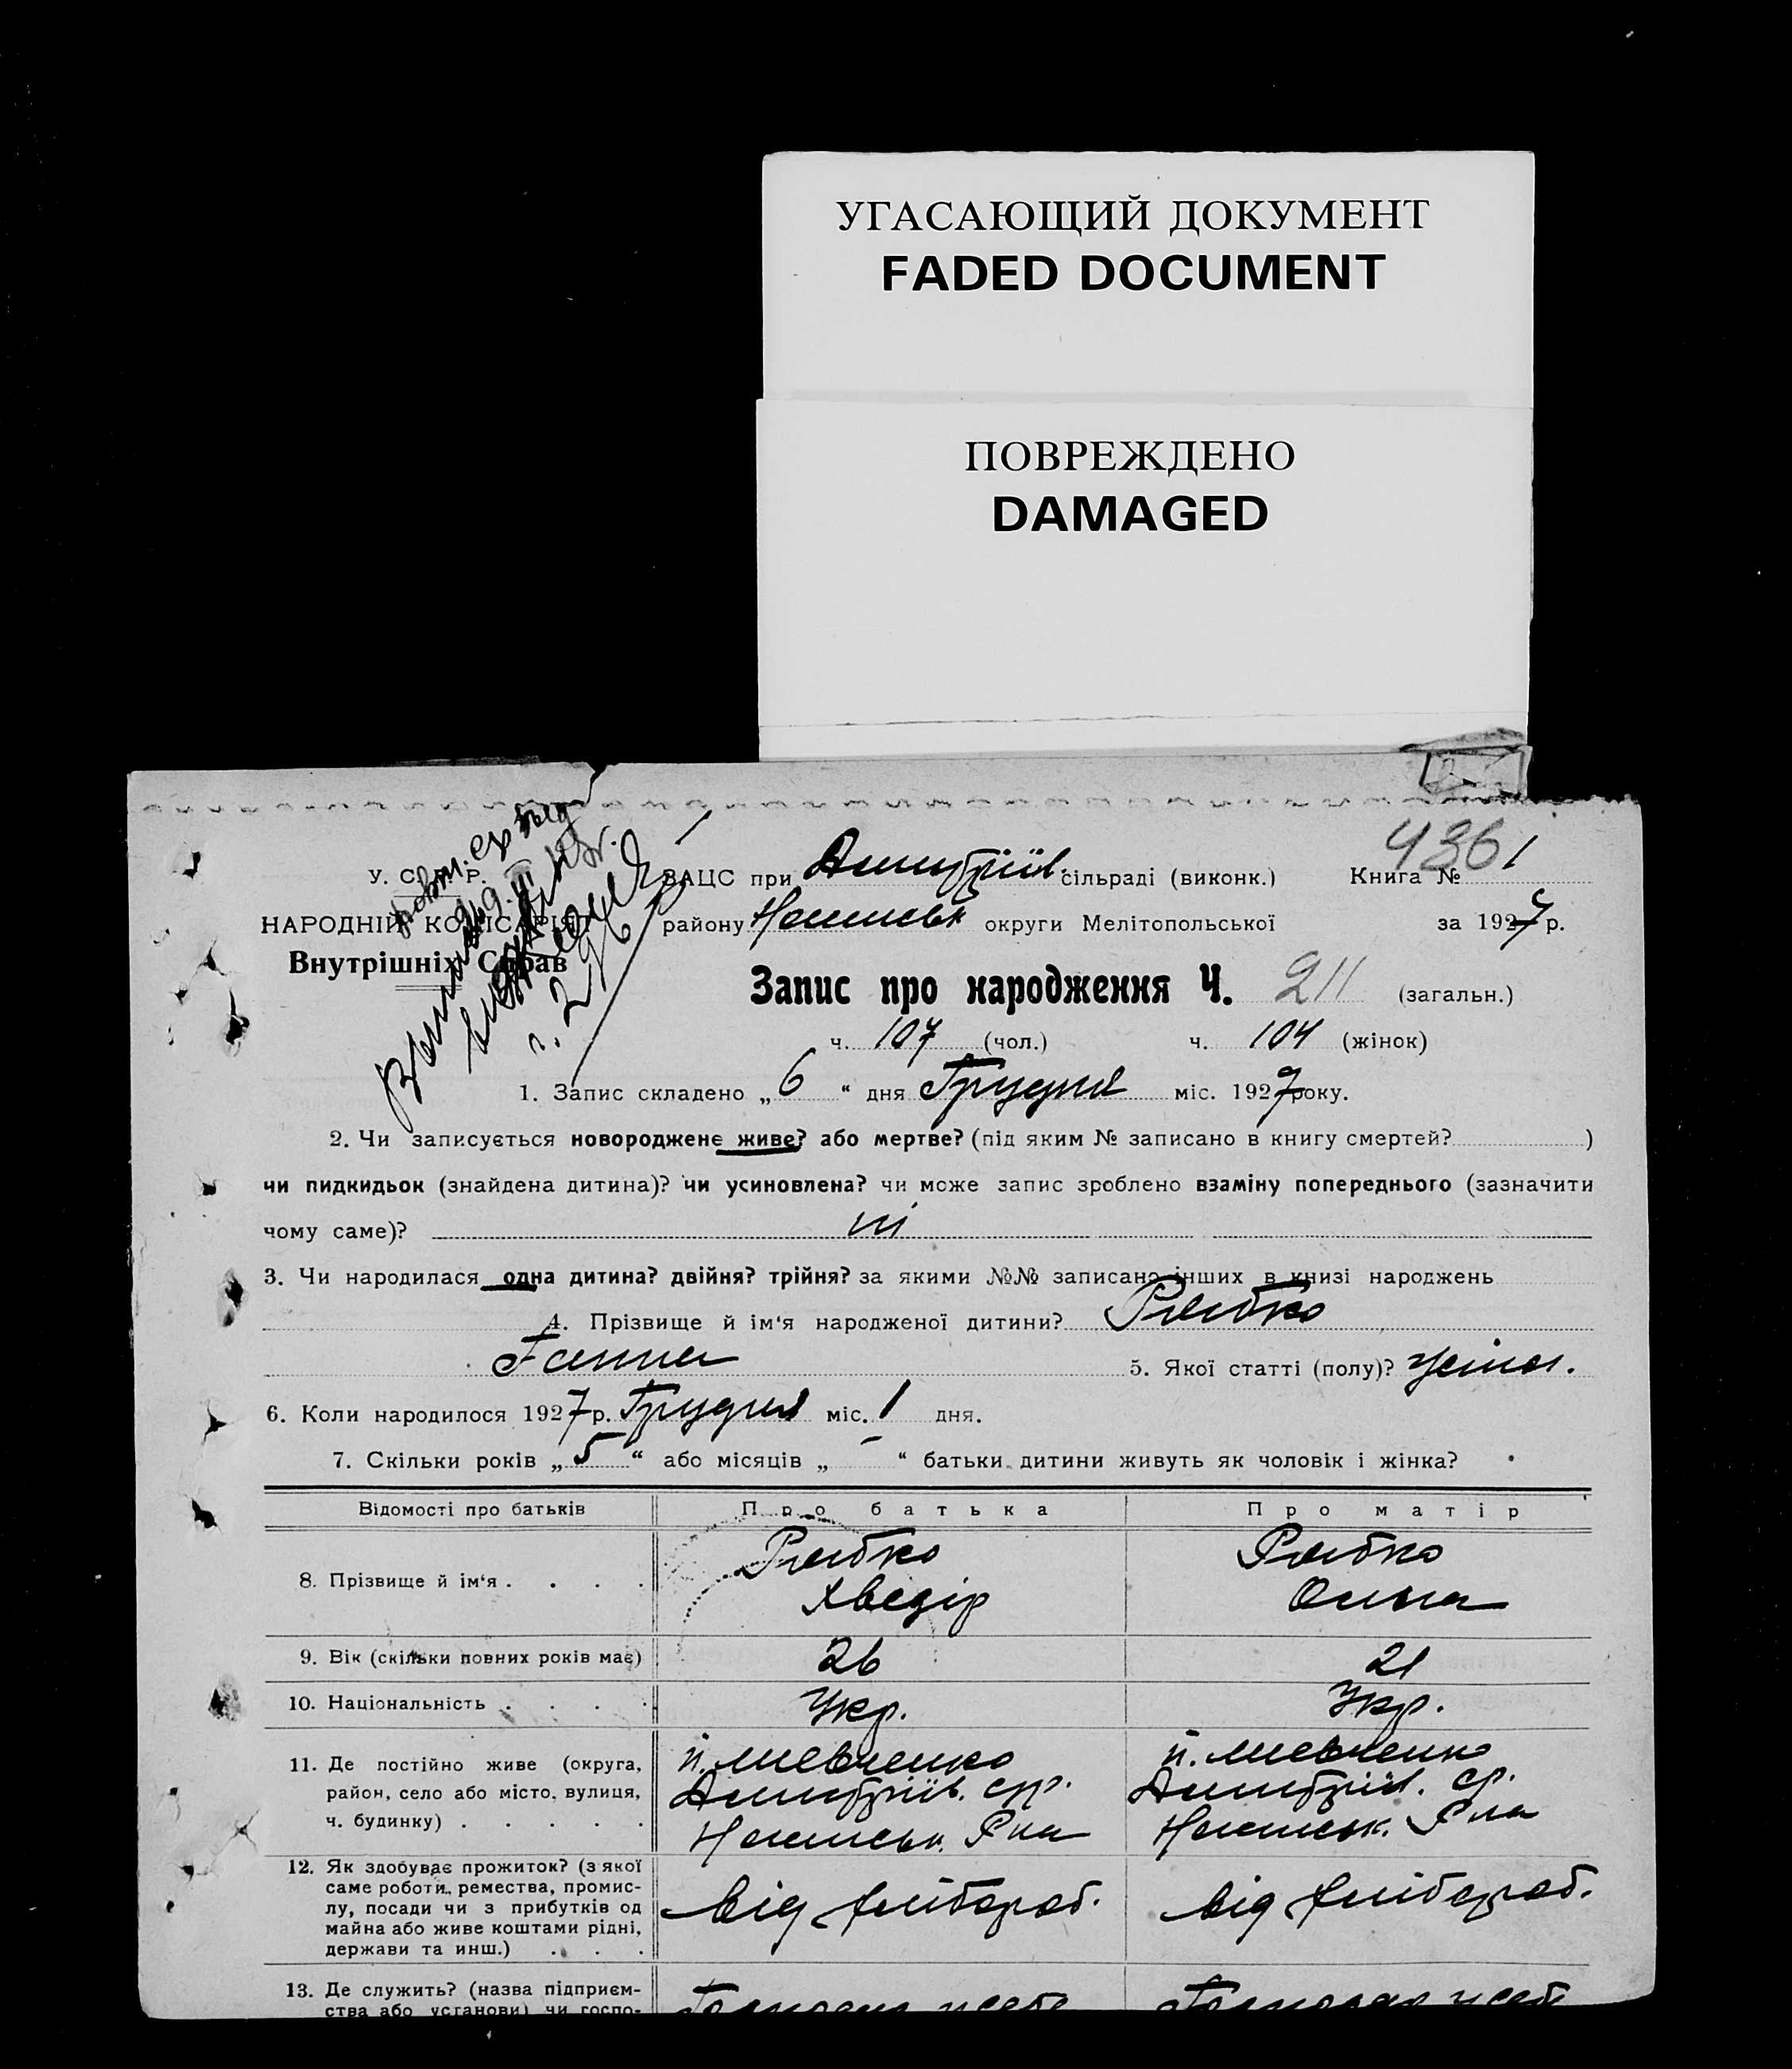 УГАСАЮЩИЙ ДОКУМЕНТ
FADED DOCUMENT
ПОВРЕЖДЕНО
DAMAGED
436 1
У. С. Р. Р.
НАРОДНІЙ КОМІСАРІЯТ
Внутрішніх Справ
ЗАЦС при Димитріїв. сільраді (виконк.) Книга №
району округи Мелітопольської за 1927 р.
Запис про народження Ч. 211 (загальн.)
ч. 107 (чол.) ч. 104 (жінок)
1. Запис складено „6“ дня Грудня міс. 1927 року.
2. Чи записується новороджене живе? або мертве? (під яким № записано в книгу смертей? )
чи пидкидьок (знайдена дитина)? чи усиновлена? чи може запис зроблено взаміну попереднього (зазначити
чому саме)? ні
3. Чи народилася одна дитина? двійня? трійня? за якими №№ записано інших в книзі народжень
4. Прізвище й ім‘я народженої дитини? Рябко
Ганна 5. Якої статті (полу)? жіноч.
6. Коли народилося 1927 р. Грудня міс. 1 дня.
7. Скільки років „5“ або місяців „-“ батьки дитини живуть як чоловік і жінка?
Відомості про батьків Про батька Про матір
8. Прізвище й ім‘я . . . . Рябко Рябко
Хведір Ольга
9. Вік (скільки повних років має) 26 21
10. Національність . . . . Укр. Укр.
11. Де постійно живе (округа, п. Шевченко п. Шевченко
район, село або місто, вулиця, Димитріїв. ср. Димитріїв. ср.
ч. будинку) . . . . . Р-на Р-на
12. Як здобуває прожиток? (з якої
саме роботи, ремества, промис-
лу, посади чи з прибутків од від хлібороб. від хлібороб.
майна або живе коштами рідні,
держави та инш.) . . .
13. Де служить? (назва підприєм-
ства або установи) чи госпо-